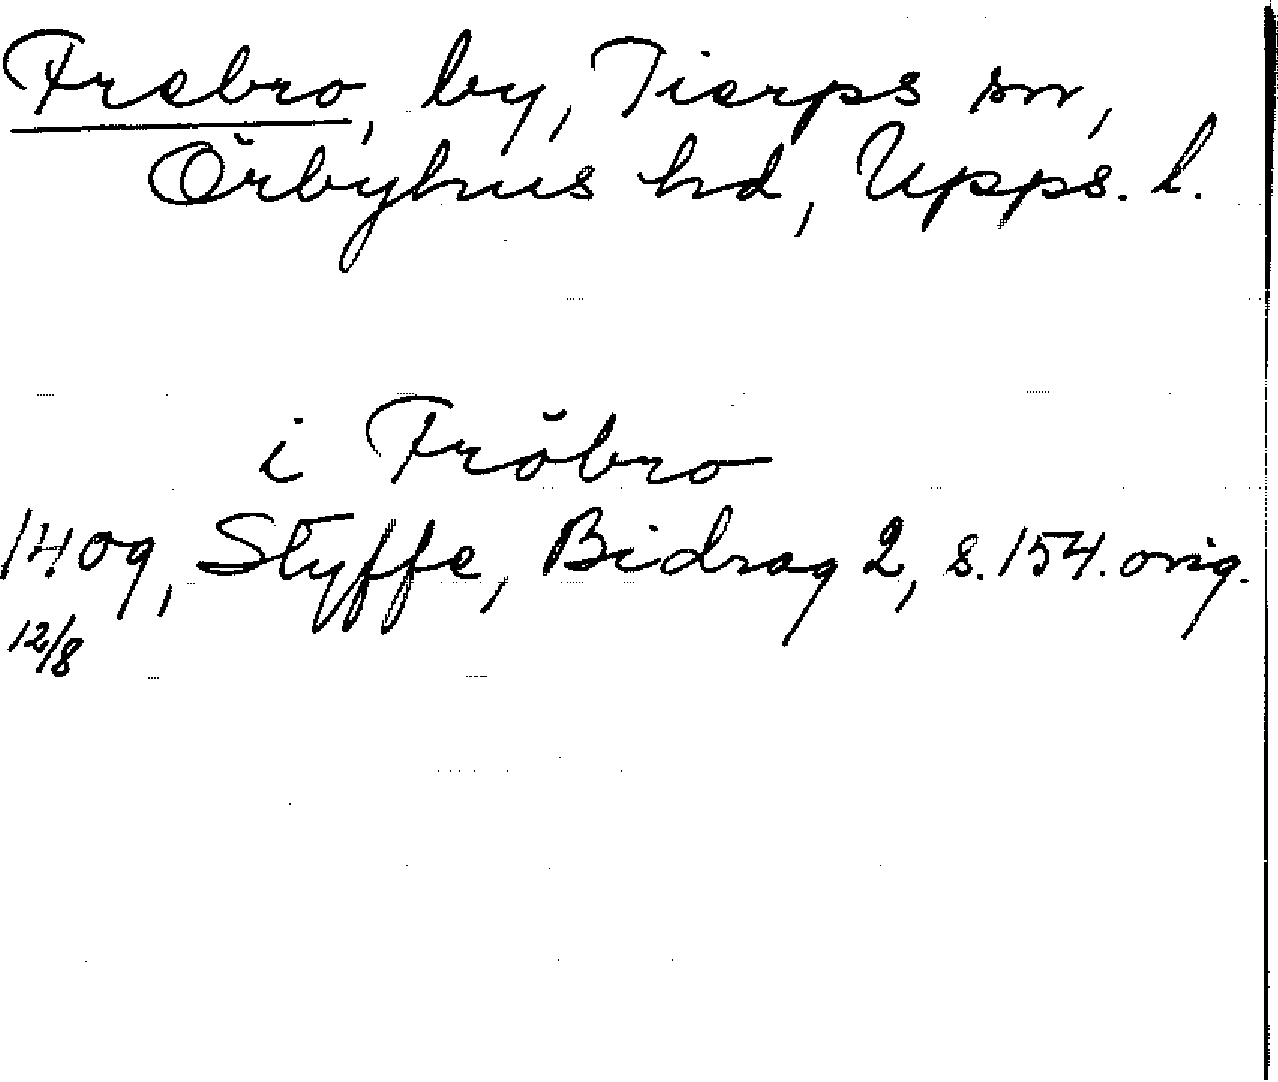 Frebro, by, Tierps sn,
Örbyhus hd, Upps. l.
i Fröbro
1409, Styffe, Bidrag 2, s. 154. orig.
12/8